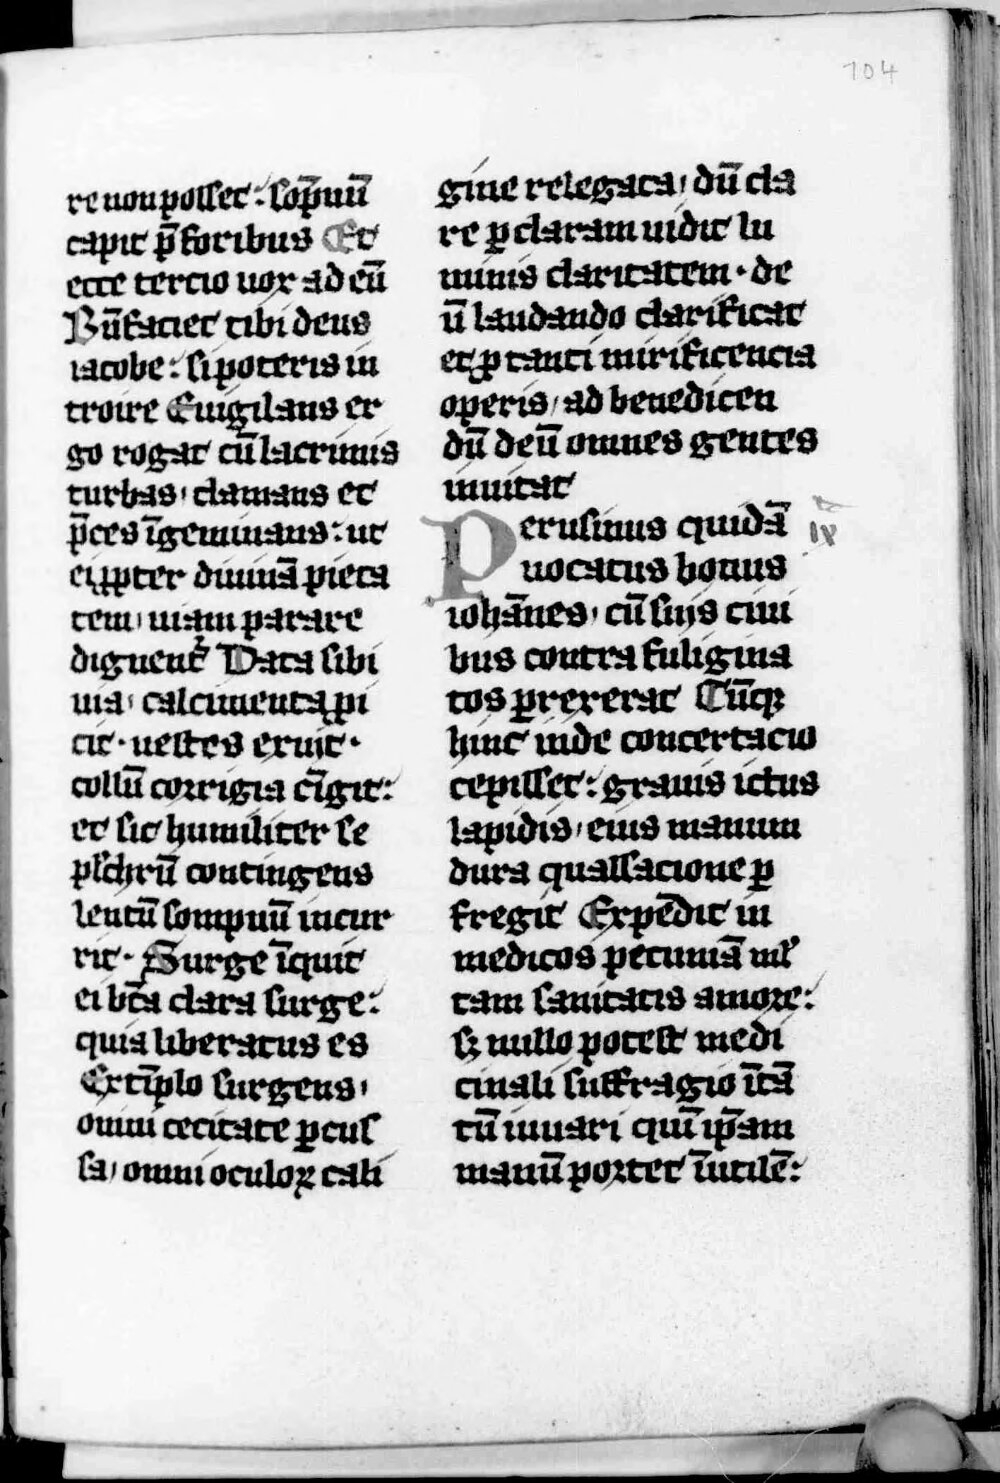 104
re non posset: sop̄nū
capit p̄ foribus Et
ecce tercio uox ad eū
Bn̄faciet tibi deus
iacobe: si poteris in
troire Euigilans er
go rogat cū lacrimis
turbas, clamans et
p̄ces īgeminans: ut
ei ꝓpter diuinā pieta
tem, uiam parare
dignent᷑ Data sibi
uia, calcimenta ꝓi
cit· uestes exuit·
collū corrigia cīgit:
et sic humiliter se
plchrū contingens
lentū sompnū incur
rit· Surge īquit
ei bt̄a clara surge:
quia liberatus es
Extīplo surgens,
omni cecitate ꝑcus
sa, omni oculoꝝ cali
gine relegata, dū cla
re ꝑ claram uidit lu
minis claritatem· de
ū laudando clarificat
et ꝓ tanti mirificencia
operis, ad benedicen
dū deū omnes gentes
inuitat
Perusinus quidā
uocatus bonus
iohānes, cū suis ciui
bus contra fuligina
tos ꝑrexerat Cūqꝫ
hinc inde concertacio
cepisset: grauis ictus
lapidis, eius manum
dura quassacione ꝑ
fregit Expēdit in
medicos pecuniā ml᷑
tam sanitatis amore:
sꝫ nullo potest medi
cinali suffragio ītā
tū iuuari quī ip̄am
manū portet īutilē:
IX